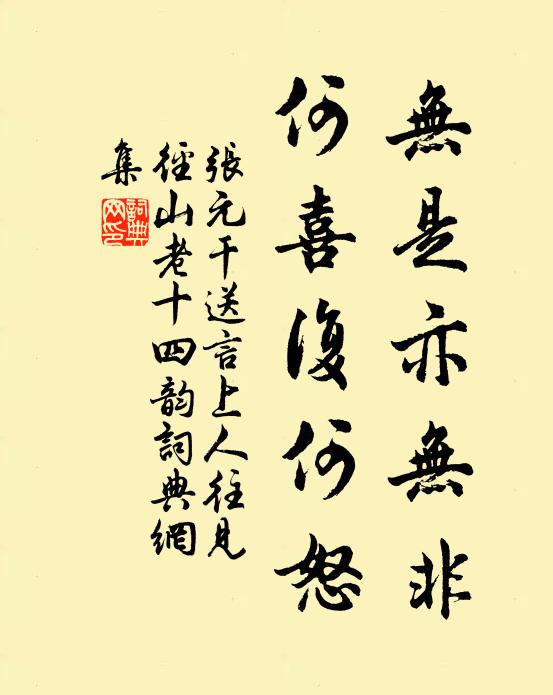 無是亦無非
何喜復何怒
張元干送言上人往見
徑山老十四韵詞典網
集
詞典
网印